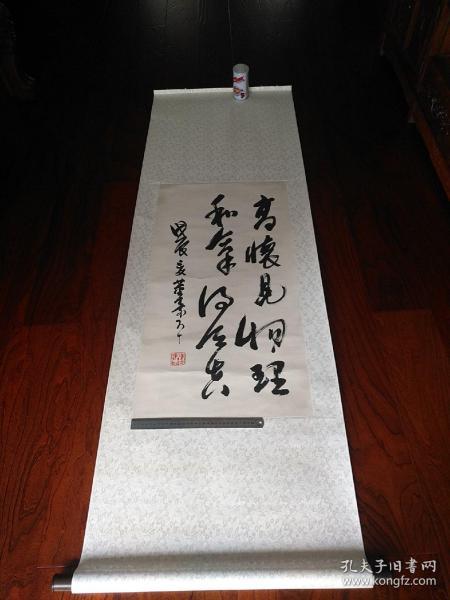 高怀见物理
和气得天真
甲辰夏
孔夫子旧书网
www.kongfz.com